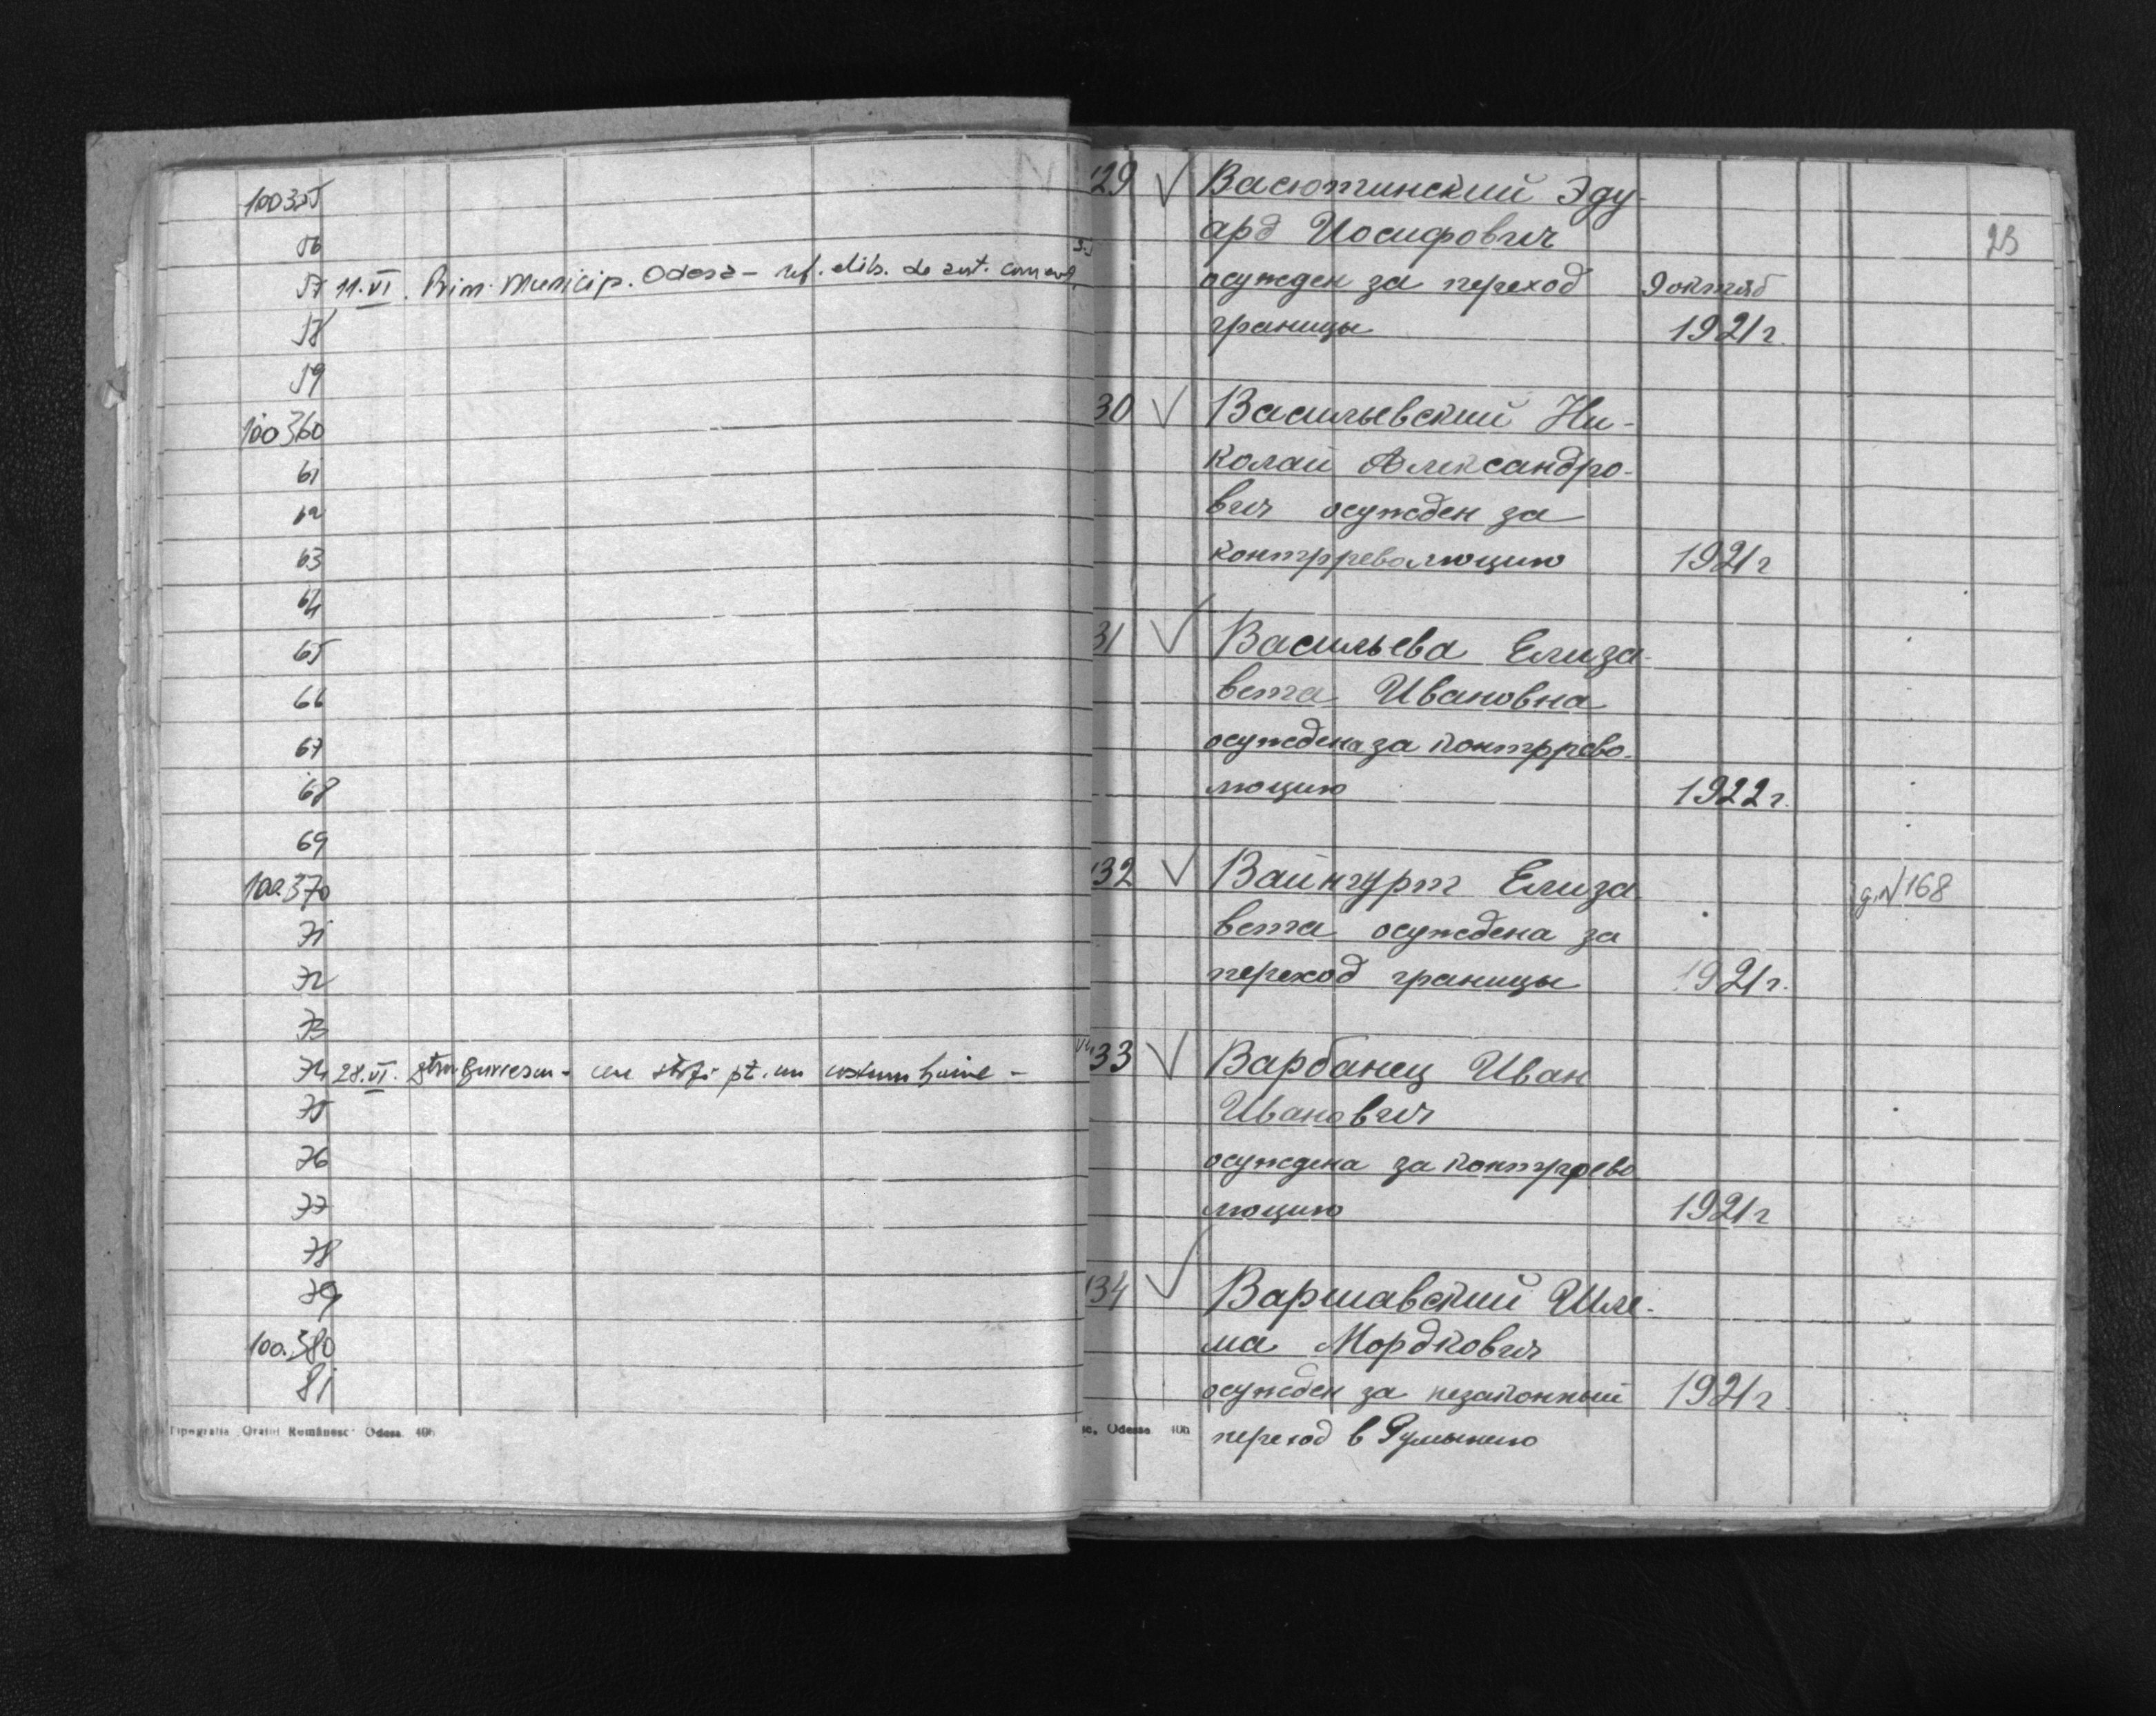 100355
56
57 11.VI. Prim. Municip. Odesa - ref. elib. de aut.
58
59
100360
61
62
63
64
65
66
67
68
69
100.370
71
72
73
74 28.VI. pt. un costum haine -
75
76
77
78
79
100.380
81
Tipografia „Oratul Românesc" Odesa. 406
23
29 Васютинский Эду-
ард Иосифович
осужден за переход 9 октяб
границы 1921 г.
30 Васильевский Ни-
колай Александро-
вич осужден за
контрреволюцию 1921 г
31 Васильева Елиза-
вета Ивановна
осуждена за контррево-
люцию 1922 г.
132 Вайнгурт Елиза- д. N 168
вета осуждена за
переход границы 1921 г.
133 Варбанец Иван
Иванович
осуждена за контррево
люцию 1921 г
134 Варшавский Шле-
ма Мордкович
осужден за незаконный 1921 г
переход в Румынию
sc, Odessa 406